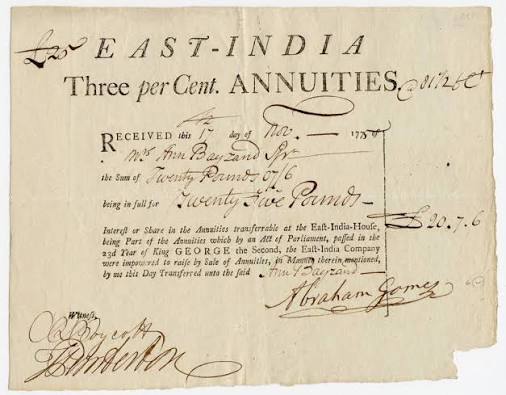 £25 EAST-INDIA
Three per Cent. ANNUITIES. @ 81½ ct
RECEIVED this 17 day of Nov. 17
Mrs Ann Bayzand Spr
the Sum of Twenty Pounds 07/6
being in full for Twenty Five Pounds
£20.7.6
Interest or Share in the Annuities transferrable at the East-India-House,
being Part of the Annuities which by an Act of Parliament, passed in the
23d Year of King GEORGE the Second, the East-India Company
were impowered to raise by Sale of Annuities, in Manner therein mentioned,
by me this Day Transferred unto the said Ann Bayzand
Abraham Gomes
Witness
Boycott